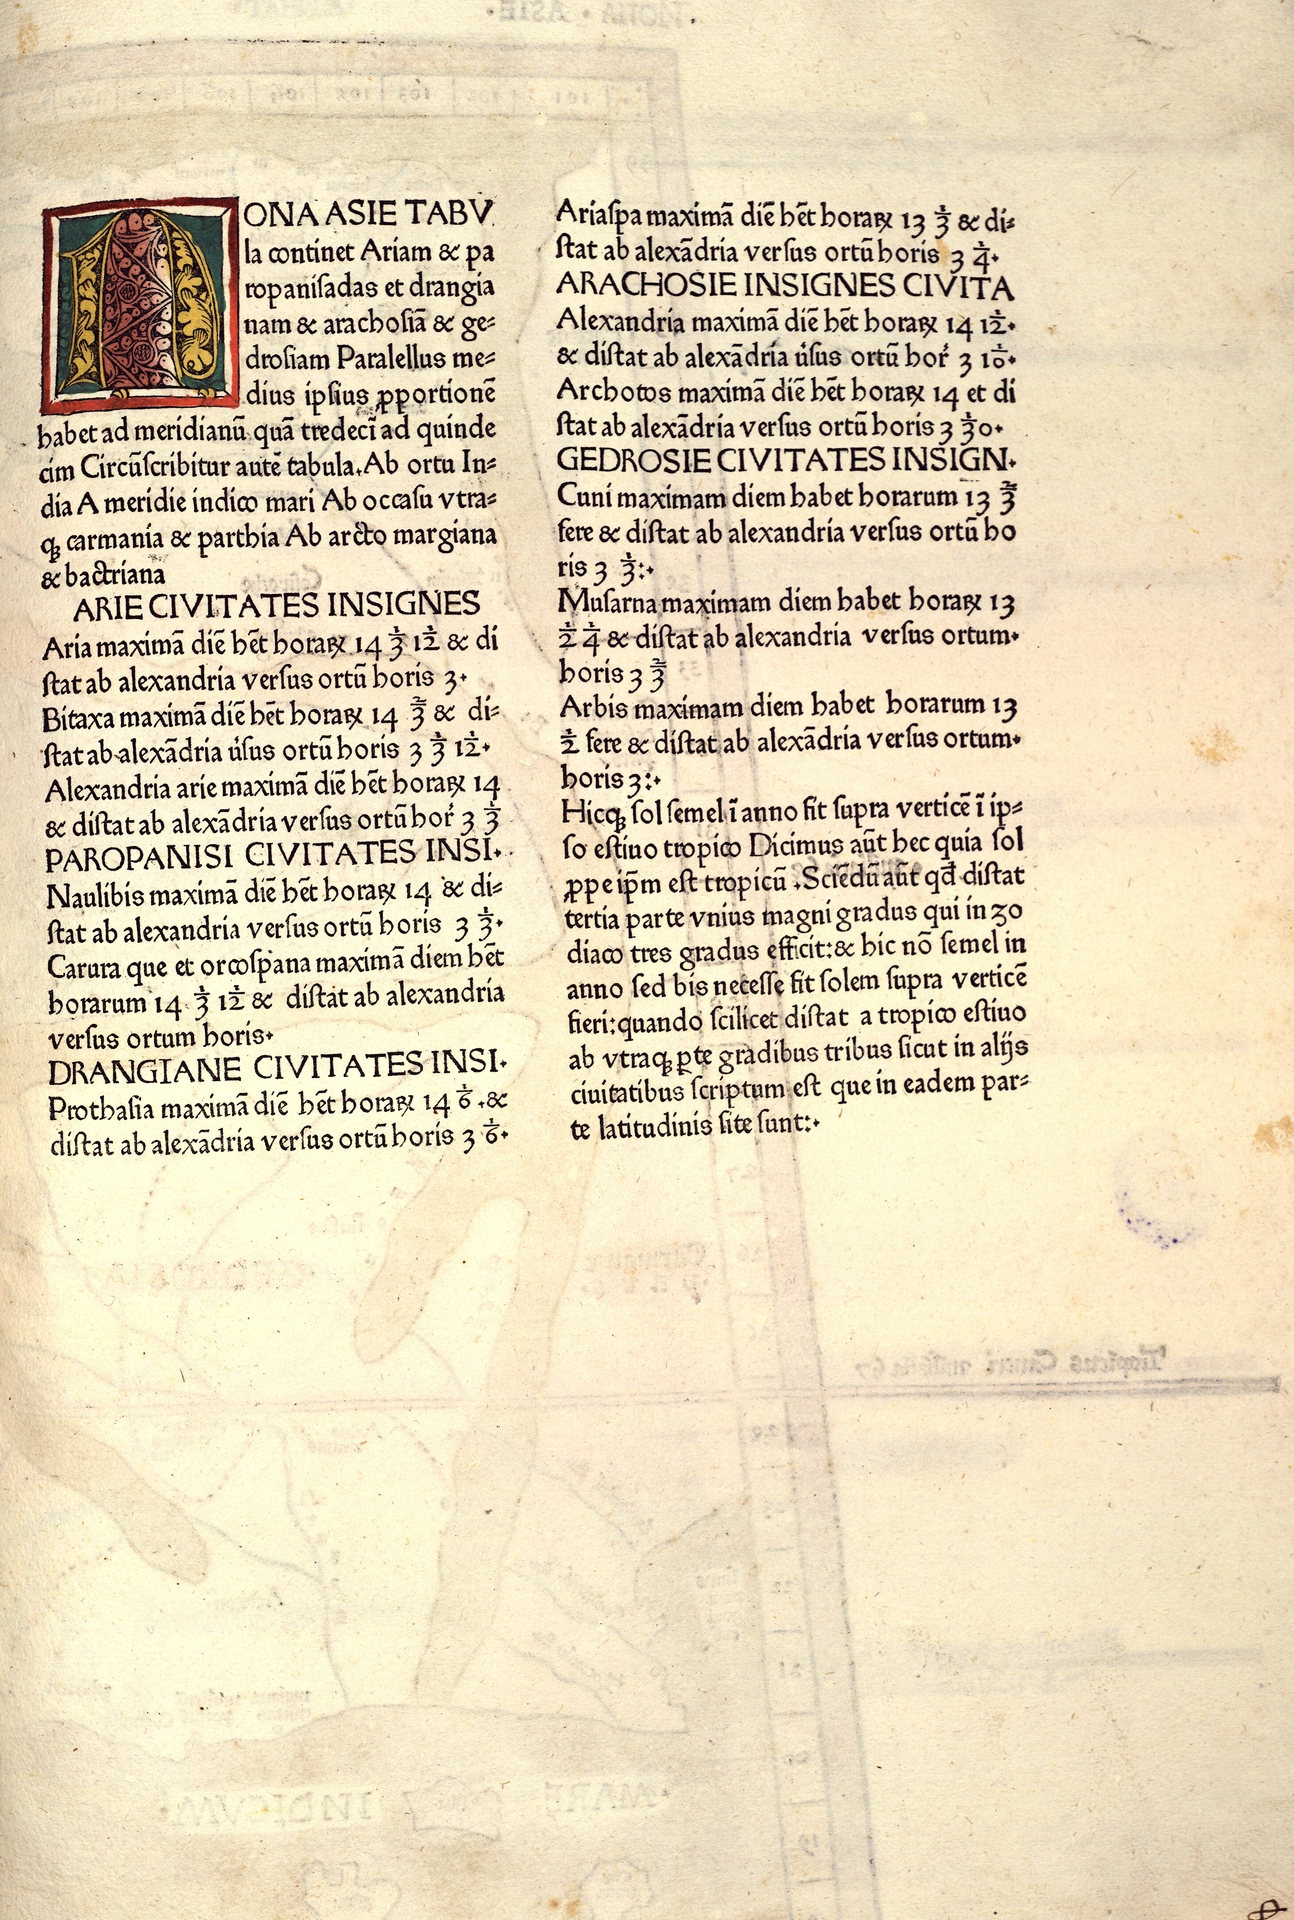 NONA ASIE TABV
la continet Ariam & pa
ropanisadas et drangia
nam & arachosiā & ge⸗
drosiam Paralellus me⸗
dius ipsius ꝓportionē
habet ad meridianū quā tredecī ad quinde
cim Circūscribitur autē tabula. Ab ortu In⸗
dia A meridie indico mari Ab occasu vtra⸗
qꝫ carmania & parthia Ab arcto margiana
& bactriana
ARIE CIVITATES INSIGNES
Aria maximā diē hēt horaꝝ 14 1/3 1/12 & di
stat ab alexandria versus ortū horis 3.
Bitaxa maximā diē hēt horaꝝ 14 2/3 & di⸗
stat ab alexādria v̓sus ortū horis 3 1/3 1/12.
Alexandria arie maximā diē hēt horaꝝ 14
& distat ab alexādria versus ortū hor̓ 3 1/3
PAROPANISI CIVITATES INSI.
Naulibis maximā diē hēt horaꝝ 14 & di⸗
stat ab alexandria versus ortū horis 3 1/3.
Carura que et orcospana maximā diem hēt
horarum 14 1/3 1/12 & distat ab alexandria
versus ortum horis.
DRANGIANE CIVITATES INSI.
Prothasia maximā diē hēt horaꝝ 14 1/6 .&
distat ab alexādria versus ortū horis 3 1/6.
Ariaspa maximā diē hēt horaꝝ 13 2/3 & di⸗
stat ab alexādria versus ortū horis 3 1/4.
ARACHOSIE INSIGNES CIVITA
Alexandria maximā diē hēt horaꝝ 14 1/12.
& distat ab alexādria v̓sus ortū hor̓ 3 1/10.
Archotos maximā diē hēt horaꝝ 14 et di
stat ab alexādria versus ortū horis 3 1/30.
GEDROSIE CIVITATES INSIGN.
Cuni maximam diem habet horarum 13 2/3
fere & distat ab alexandria versus ortū ho
ris 3 1/3:.
Musarna maximam diem habet horaꝝ 13
1/2 1/4 & distat ab alexandria versus ortum.
horis 3 2/3
Arbis maximam diem habet horarum 13
1/2 fere & distat ab alexādria versus ortum.
horis 3:.
Hicqꝫ sol semel ī anno fit supra verticē ī ip⸗
so estiuo tropico Dicimus aūt hec quia sol
ꝓpe ip̄m est tropicū .Sciēdū aūt qđ distat
tertia parte vnius magni gradus qui in zo
diaco tres gradus efficit:& hic nō semel in
anno sed bis necesse fit solem supra verticē
fieri:quando scilicet distat a tropico estiuo
ab vtraqꝫ ꝑte gradibus tribus sicut in alijs
ciuitatibus scriptum est que in eadem par⸗
te latitudinis site sunt:.